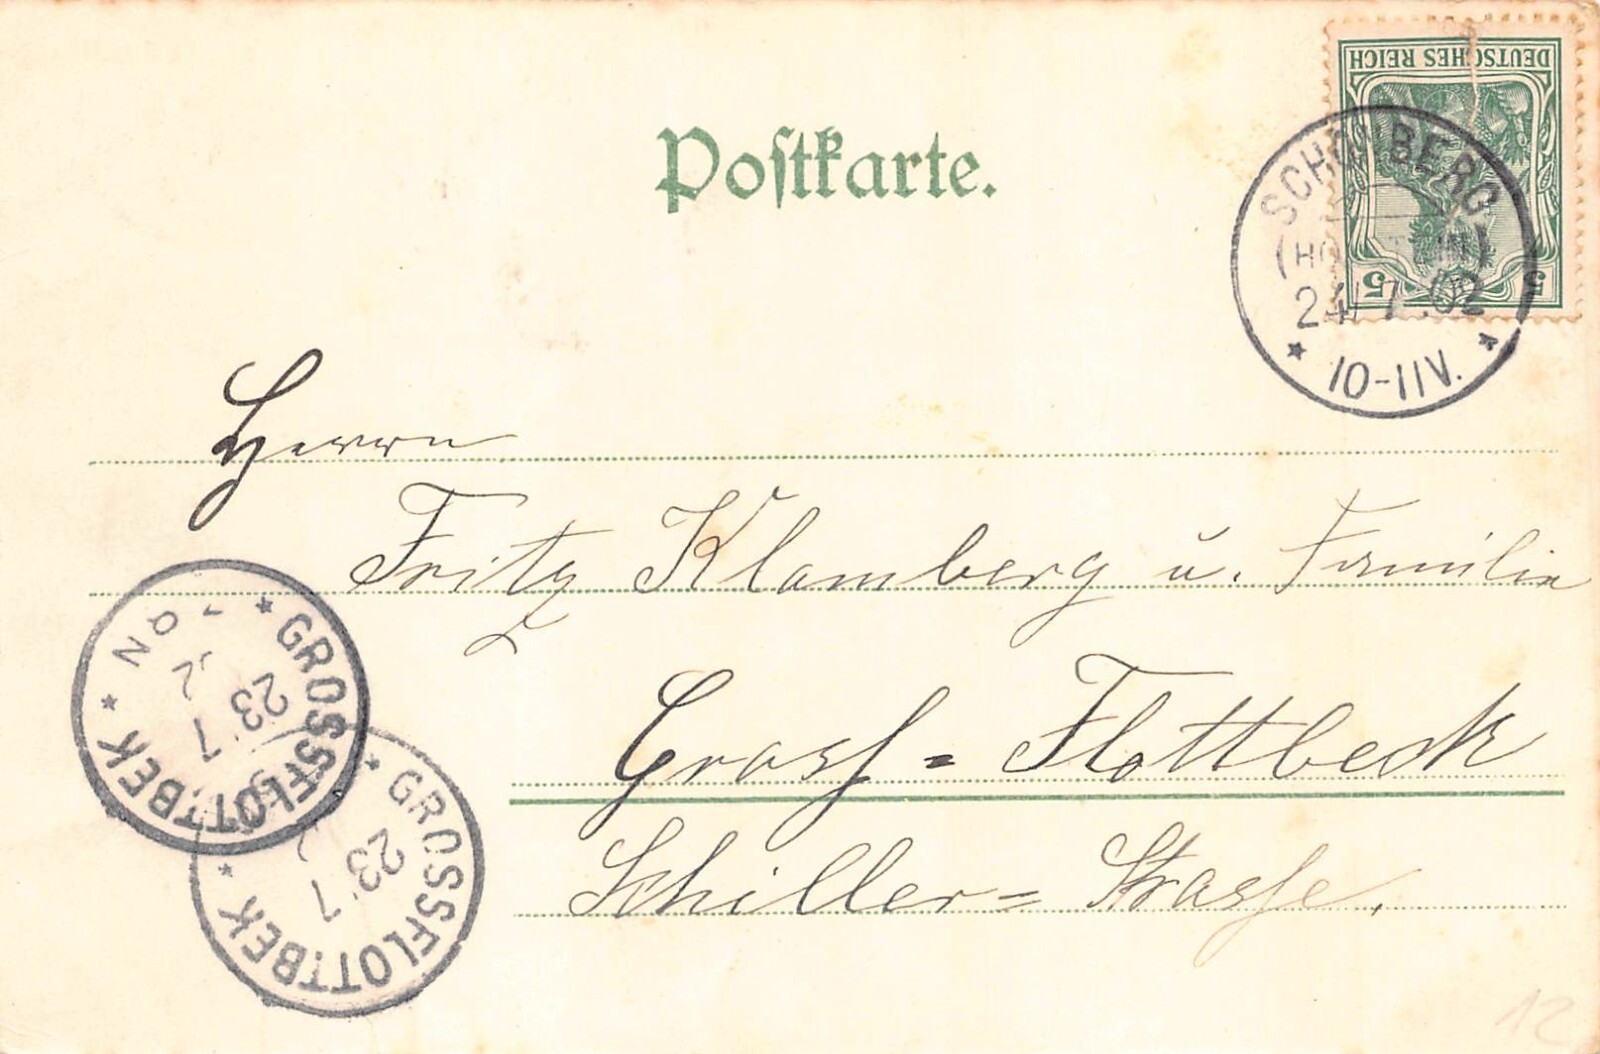 DEUTSCHES REICH
5 5
Postkarte.
SCHÖNBERG
(HOLSTEIN)
24/7.02
10-11V.
Herrn
Fritz Klamberg u. Familie
Gross=Flottbeck
Schiller=Strasse.
GROSSFLOTTBEK
23 7
GROSSFLOTTBEK
23 7
12